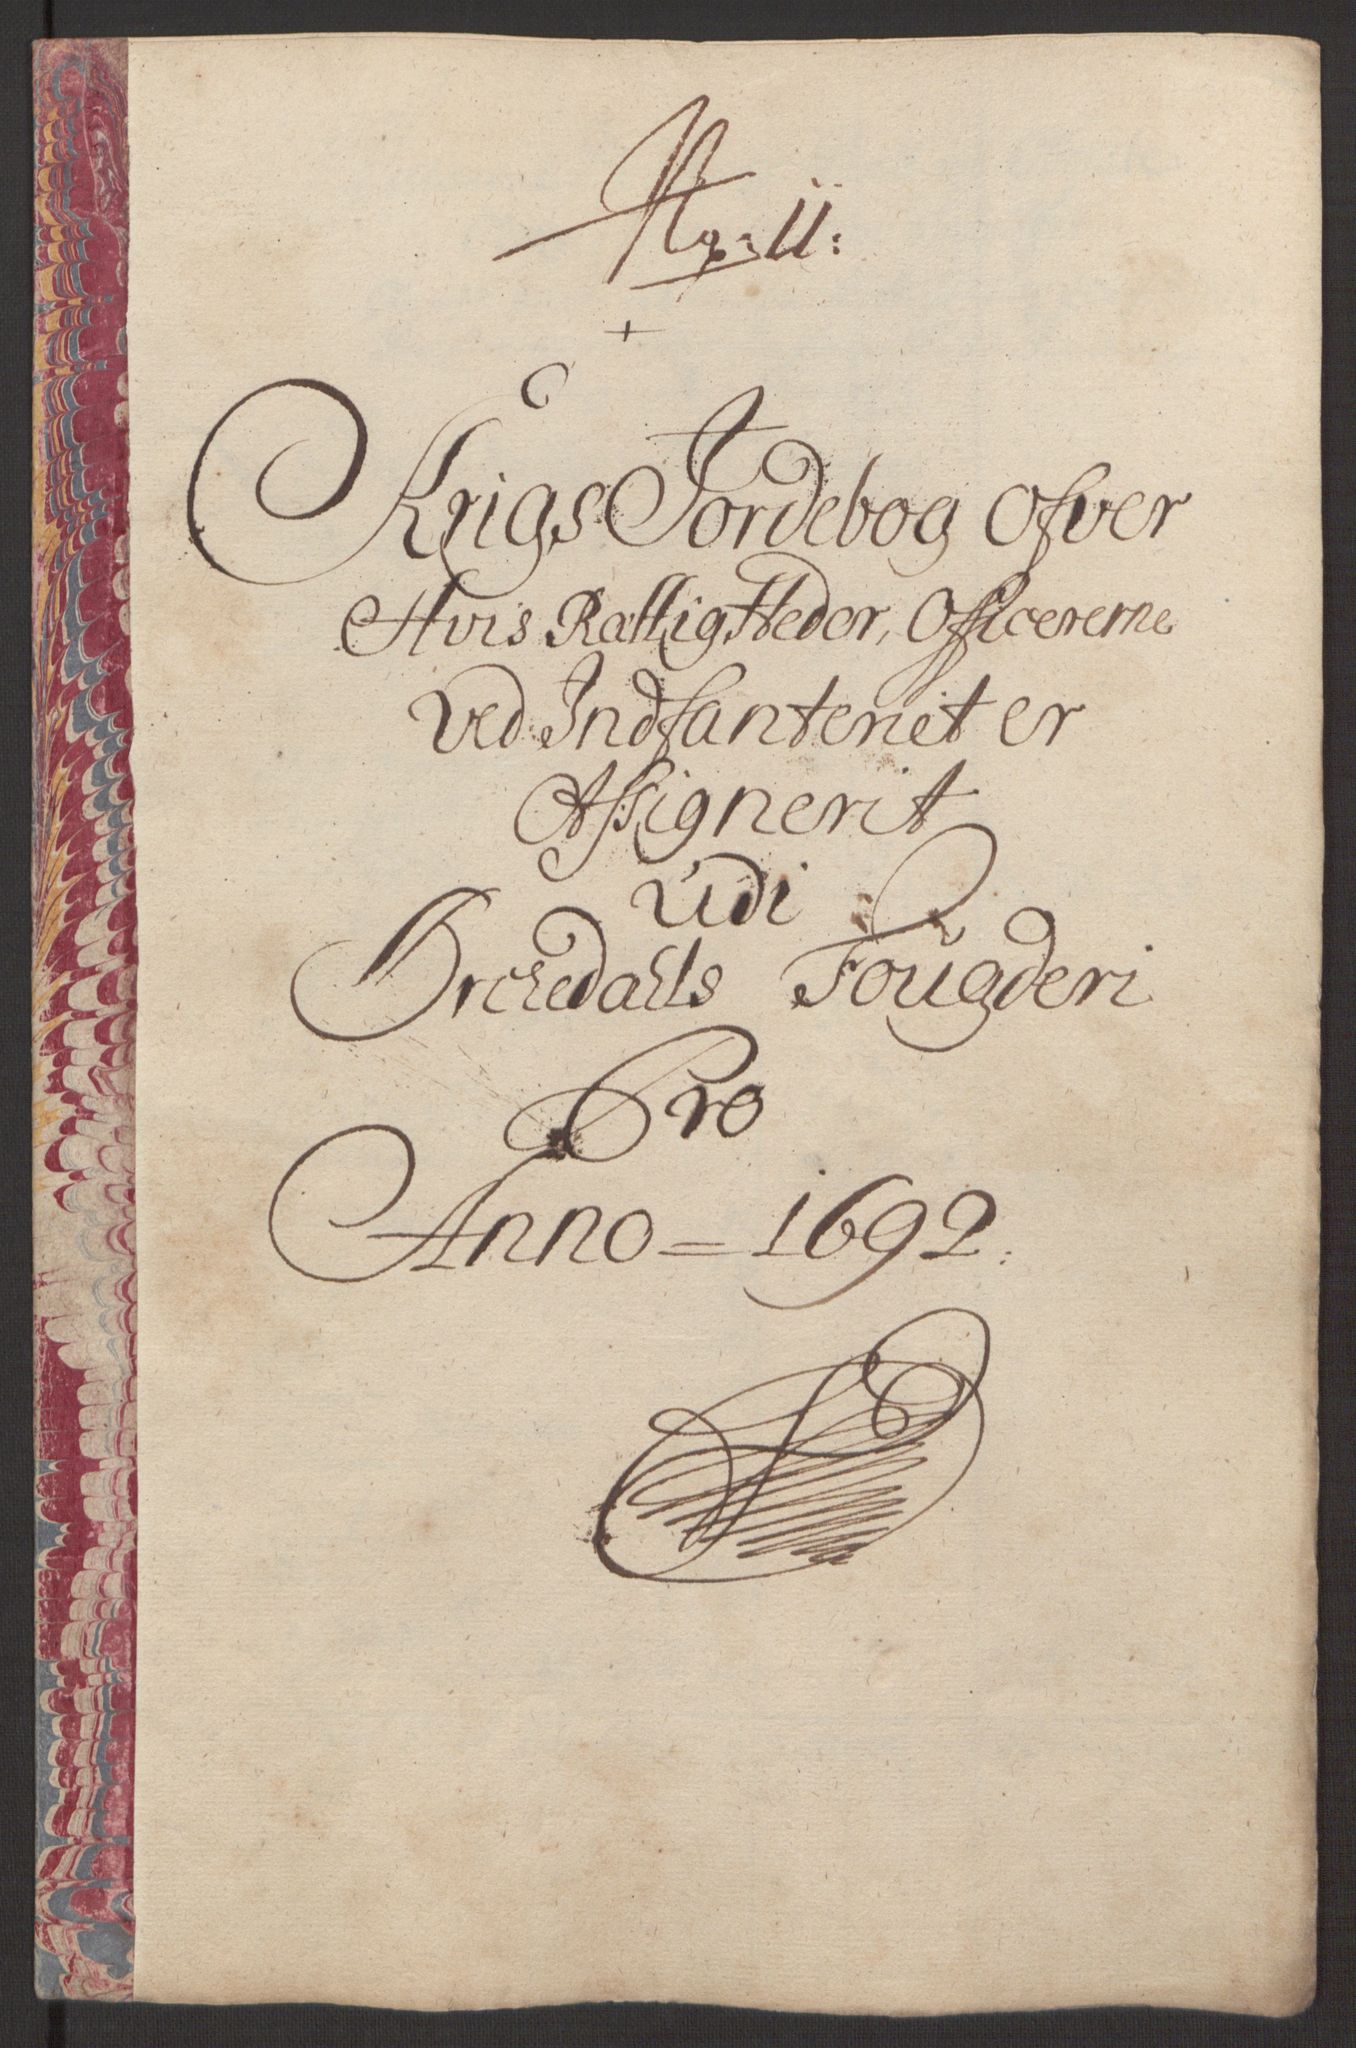 No: 11:
Krigs Jordebog Ofver
Hvis Rattigheder, Officererne
Ved Indfanteriet er
Assignerit
Udi
Orckedahls Foügderi
Pro
Anno = 1692.